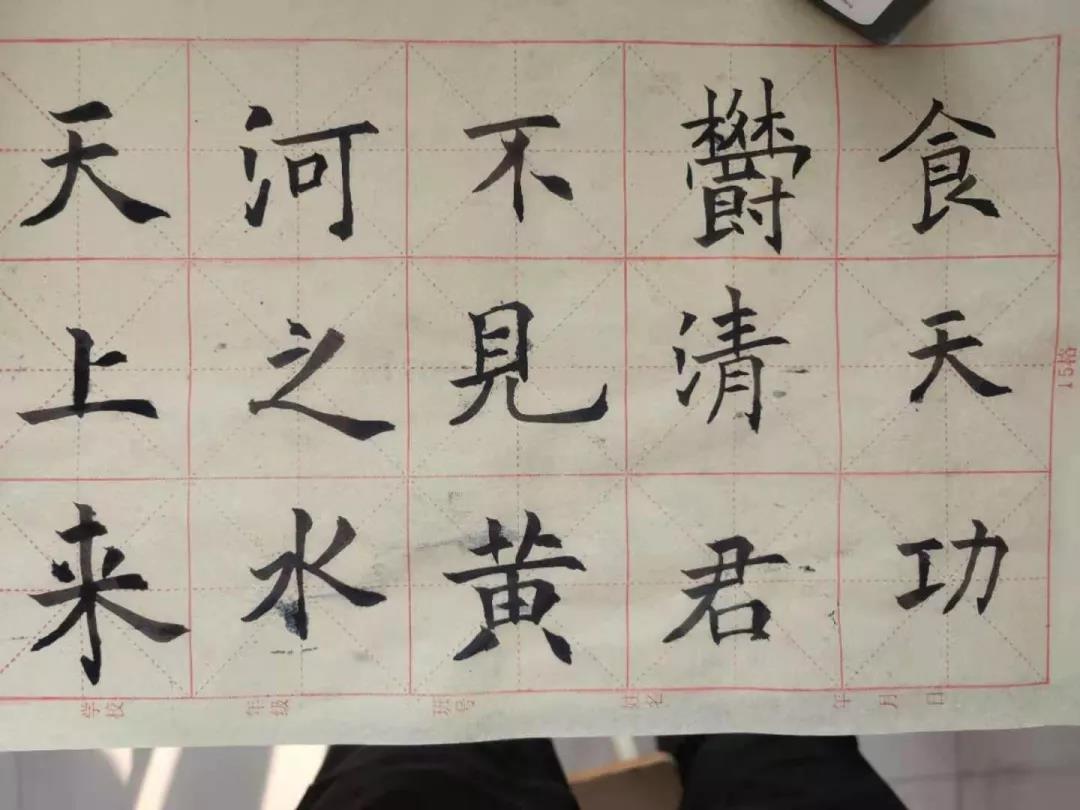 食天功
清君
不見黄
河之水
天上来
15格
学校 年级 班号 姓名 年 月 日